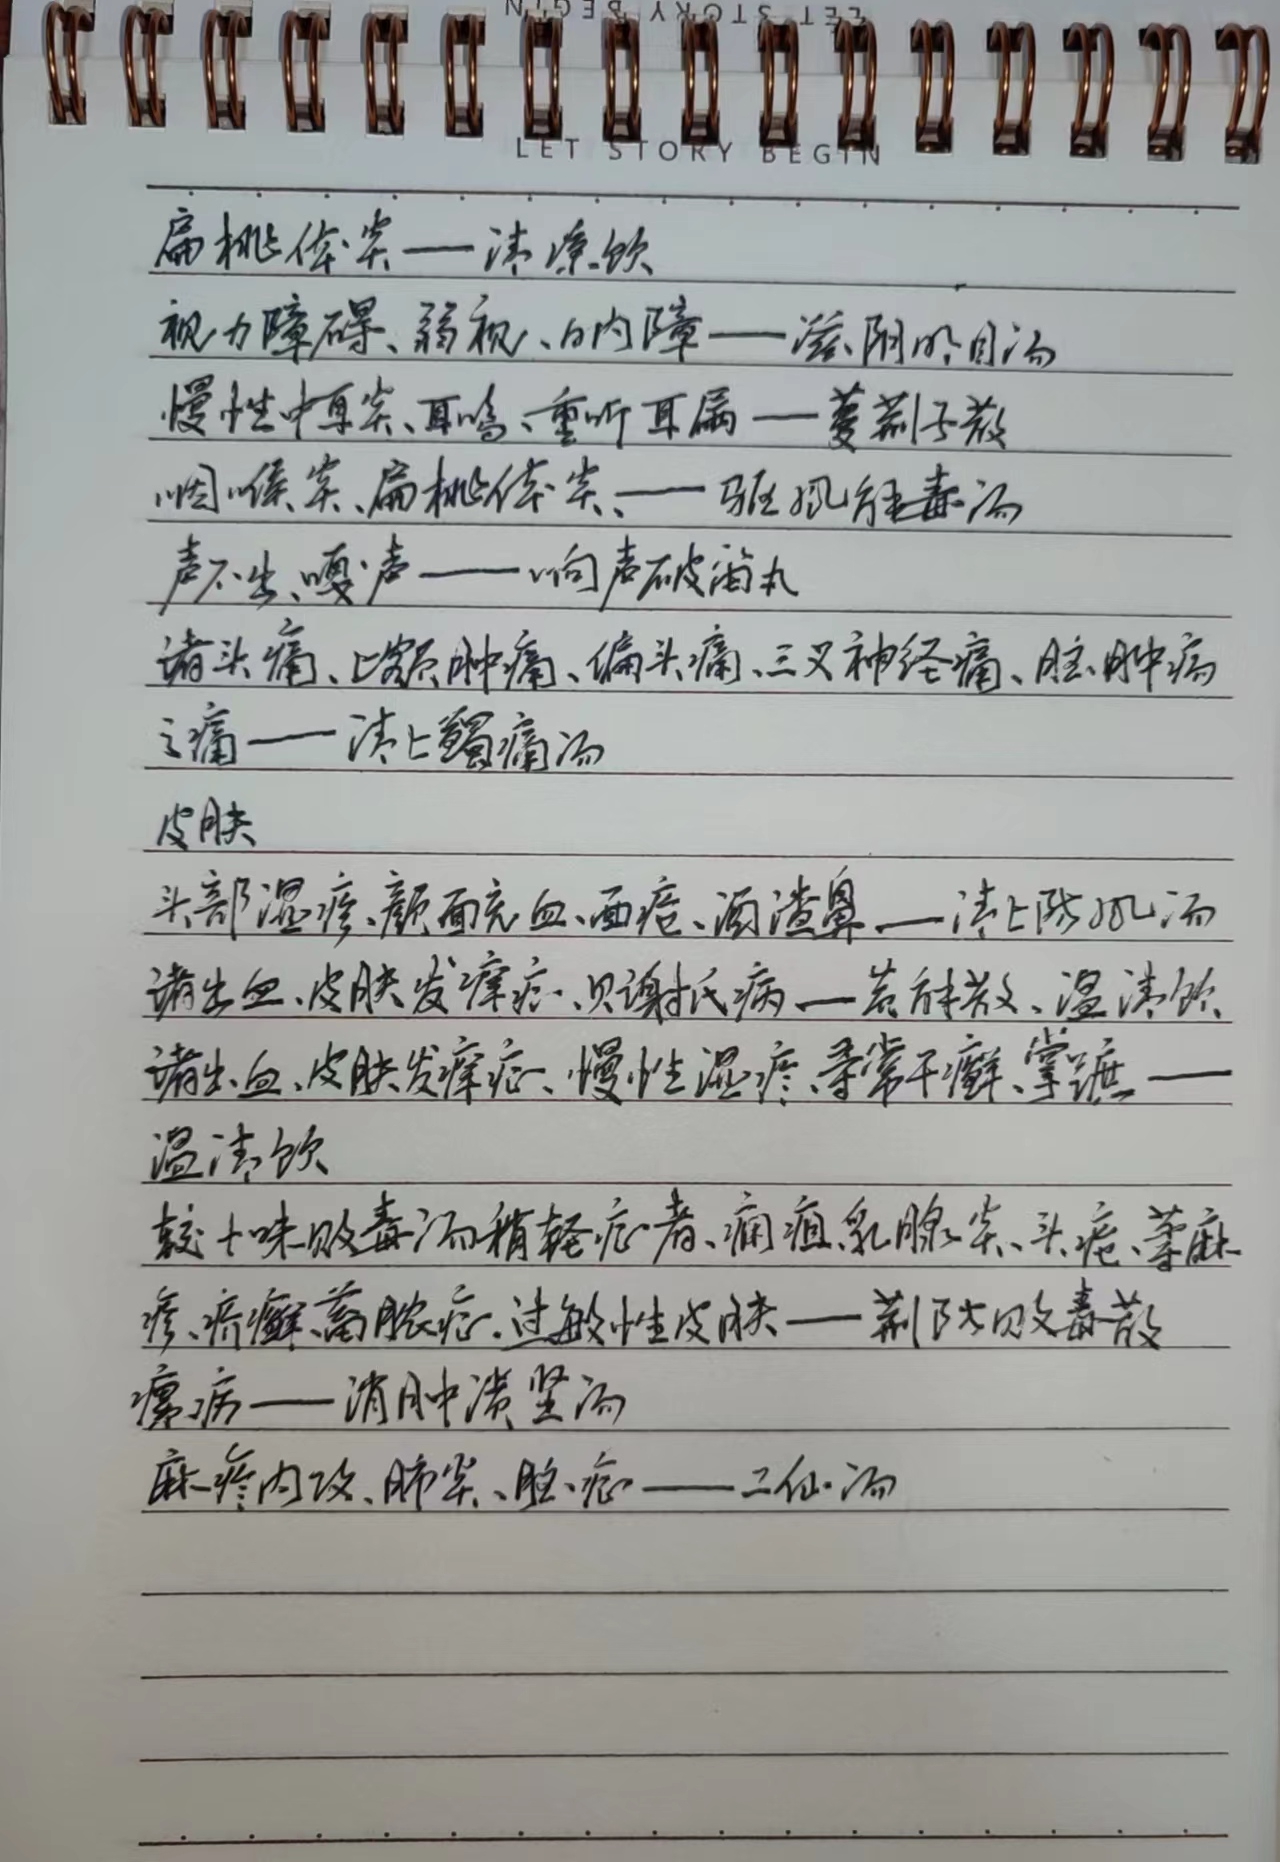 LET STORY BEGIN
LET STORY BEGIN
扁桃体炎——清凉饮
视力障碍、弱视、白内障——滋阴明目汤
慢性中耳炎、耳鸣、重听耳扁——蔓荆子散
咽喉炎、扁桃体炎、——驱风解毒汤
声不出、嘎声——响声破笛丸
诸头痛、上颚肿痛、偏头痛、三叉神经痛、脑肿病
之痛——清上蠲痛汤
皮肤
头部湿疹、颜面充血、面疮、酒渣鼻——清上防风汤
诸出血、皮肤发痒症、贝谢氏病——苦解散、温清饮
诸出血、皮肤发痒症、慢性湿疹、寻常干癣、掌蹠——
温清饮
较十味败毒汤稍轻症者、痈疽、乳腺炎、头疮、荨麻
疹、疥癣、蓄脓症、过敏性皮肤——荆防败毒散
瘰病——消肿溃坚汤
麻疹内攻、肺炎、脑症——二仙汤